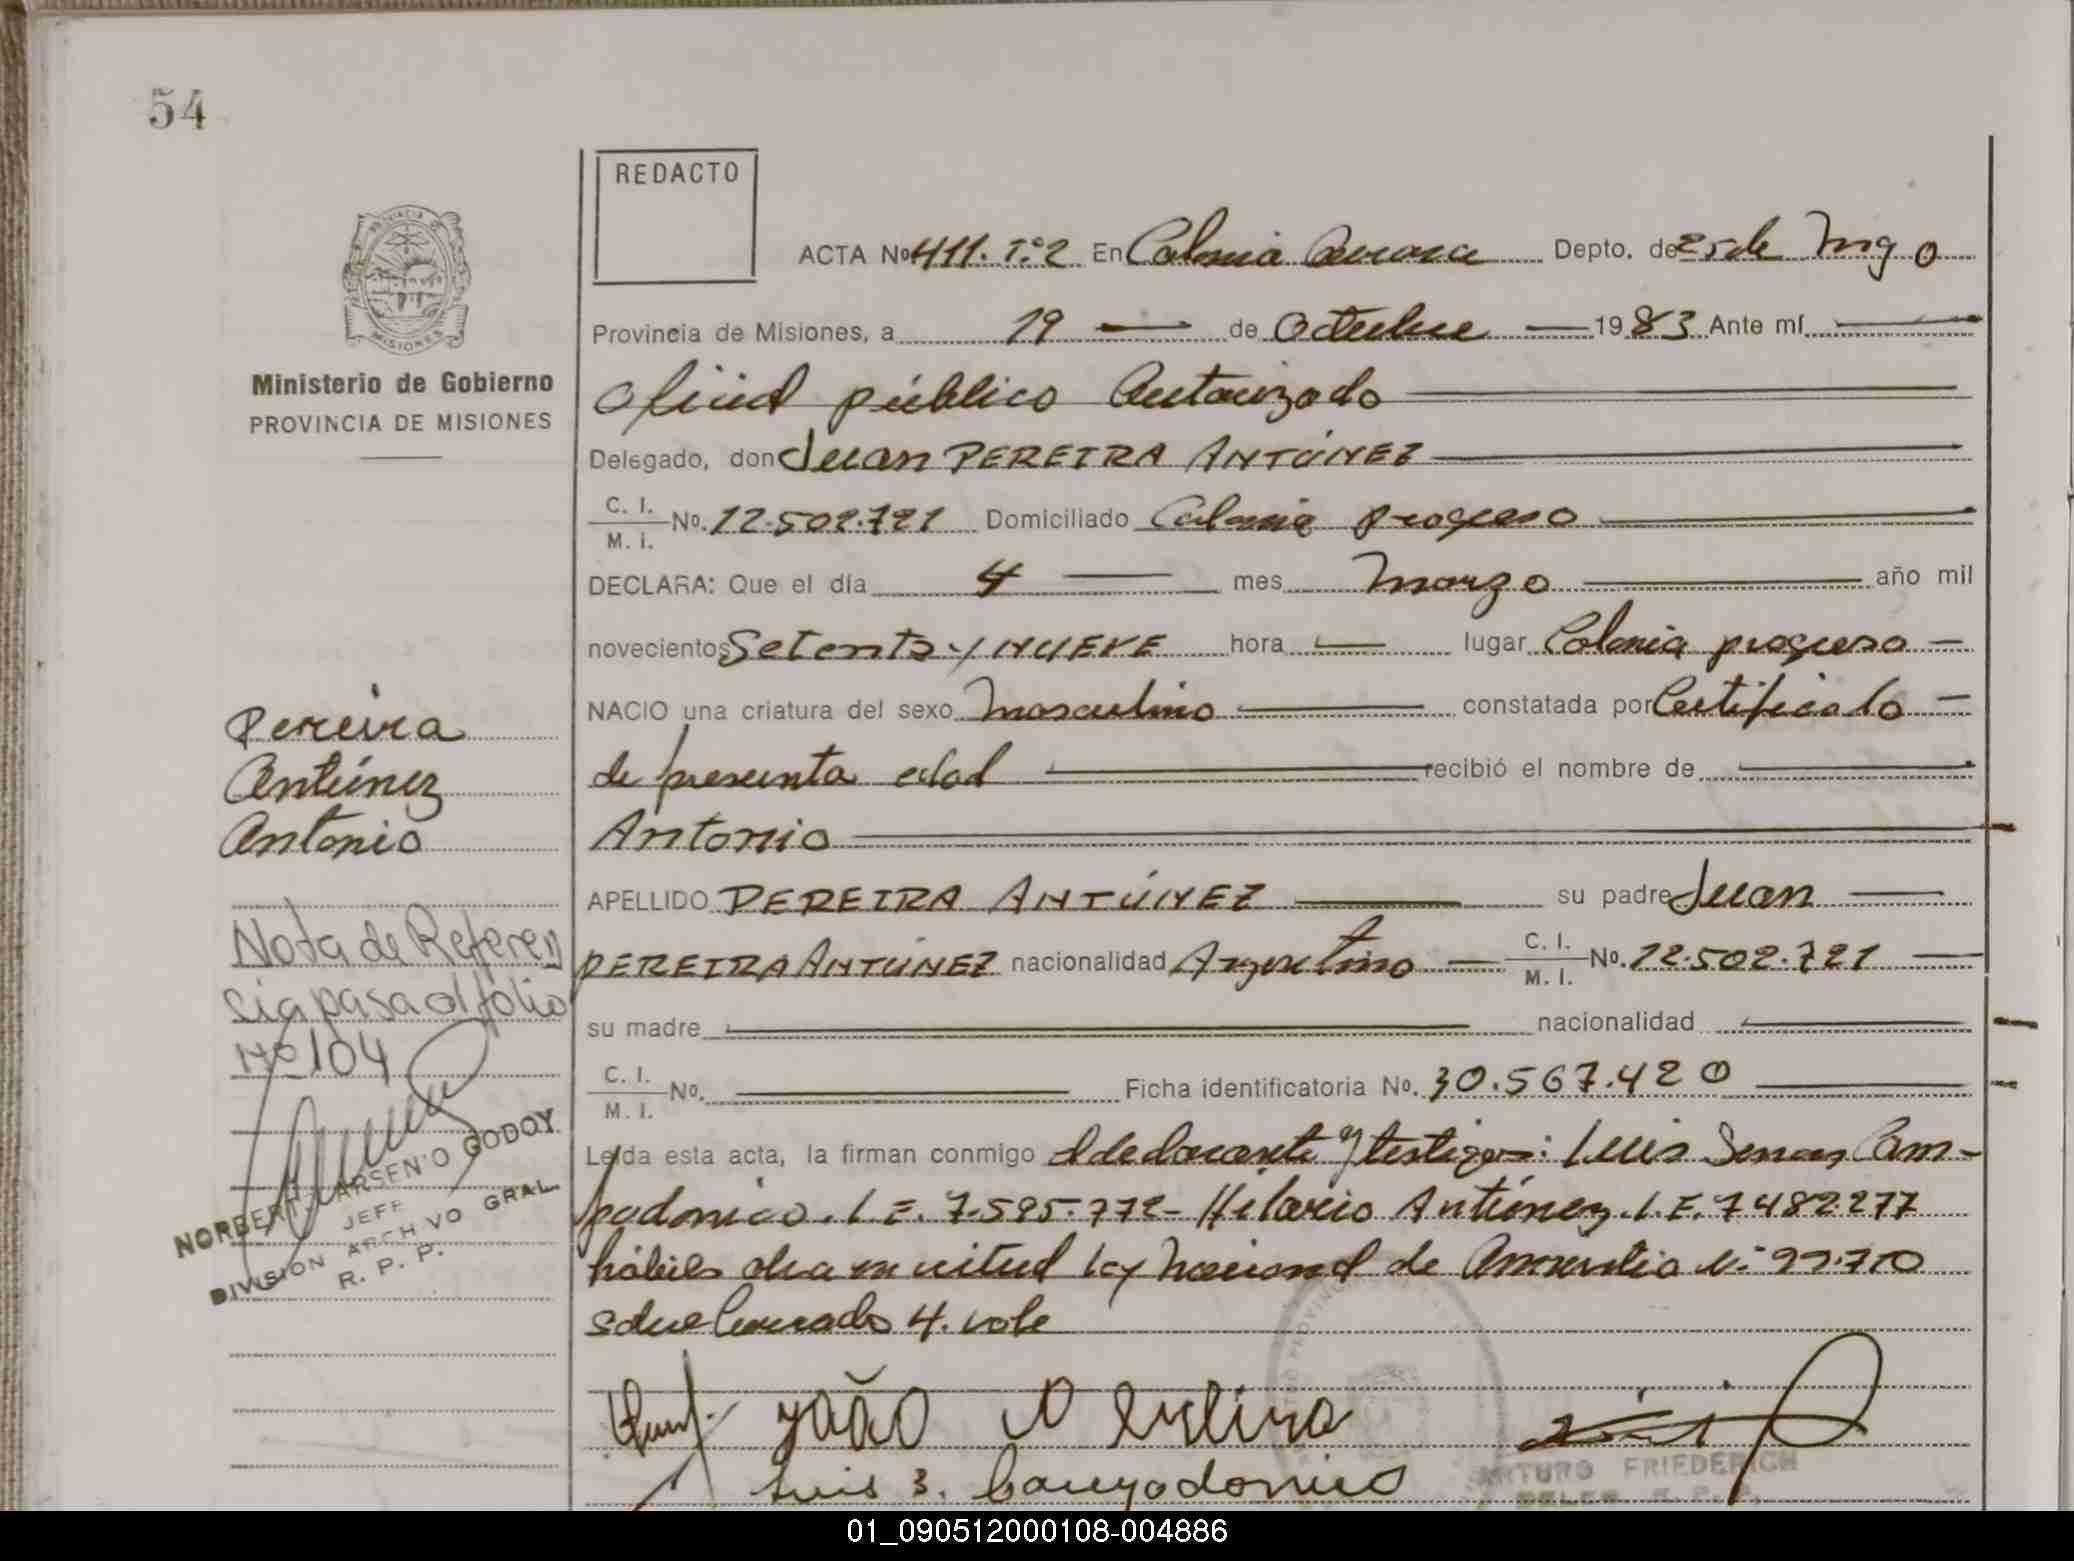 54
REDACTO
ACTA Nº 411. Tº 2 En Colonia Aurora Depto. de 25 de Mayo
Provincia de Misiones, a 19 de Octubre 1983 Ante mí
PROVINCIA DE
MISIONES
Ministerio de Gobierno
PROVINCIA DE MISIONES
Oficial público Autorizado
Delegado, don Juan PEREIRA ANTÚNEZ
C. I.
M. I. Nº. 12.502.721 Domiciliado Colonia progreso
DECLARA: Que el día 4 mes Marzo año mil
novecientos Setenta y NUEVE hora lugar Colonia progreso
NACIO una criatura del sexo Masculino constatada por Certificado
de presunta edad recibió el nombre de
Pereira
Antúnez
Antonio
Antonio
APELLIDO PEREIRA ANTÚNEZ su padre Juan
PEREIRA ANTÚNEZ nacionalidad Argentino C. I.
M. I. Nº. 12.502.721
su madre nacionalidad
C. I.
M. I. Nº. Ficha identificatoria Nº. 30.567.420
Nota de Referen
cia pasa al folio
Nº 104
NORBERTO ARSENIO GODOY
JEFE
DIVISION ARCHIVO GRAL.
R. P. P.
Leída esta acta, la firman conmigo el declarante y testigos: Luis Cam-
podonico. L E. 7.595.772- Hilario Antúnez. L.E. 7482.277
hábiles Ley Nacional de Amnistia Nº
4. vale
João
Luis Campodonico
ARTURO FRIEDERICH
DELEG. R. P. P.
01_090512000108-004886